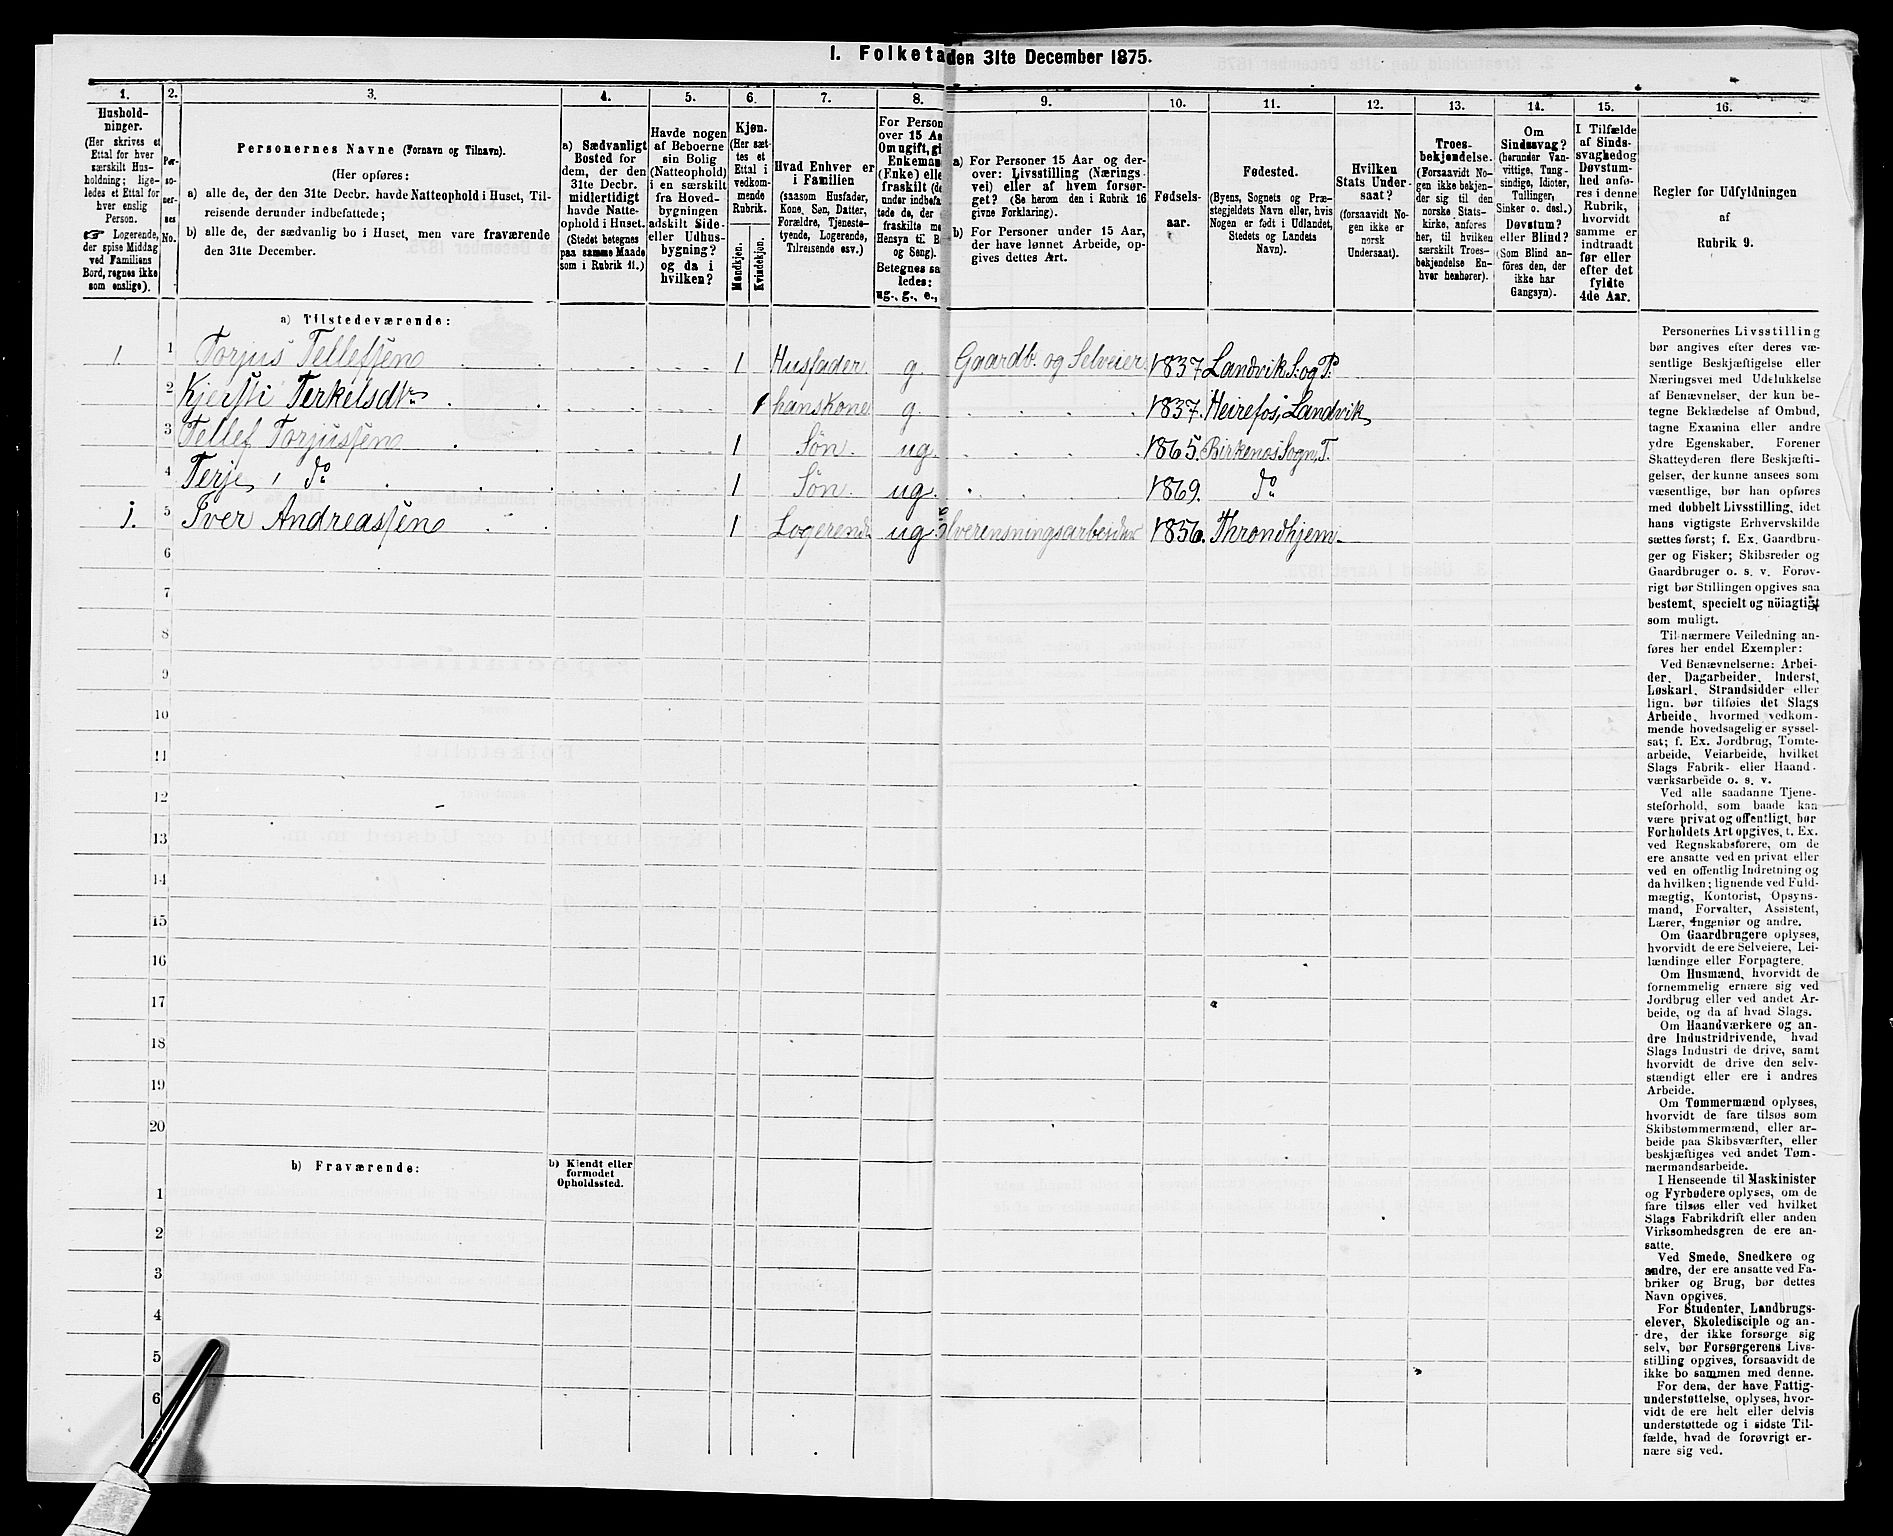 I. Folketa den 31te December 1875.
1. 2. 3. 4. 5. 6. 7. 8. 9. 10. 11. 12. 13. 14. 15. 16.
Hushold-
ninger.
(Her skrives et
Ettal for hver
særskilt Hus-
holdning; lige-
ledes et Ettal for
hver enslig
Person.
☞ Logerende,
der spise Middag
ved Familiens
Bord, regnes ikke
som enslige).
Per-
so-
ner-
nes
No.
Personernes Navne (Fornavn og Tilnavn).
(Her opføres:
a) alle de, der den 31te Decbr. havde Natteophold i Huset, Til-
reisende derunder indbefattede;
b) alle de, der sædvanlig bo i Huset, men vare fraværende
den 31te December.
a) Sædvanligt
Bosted for
dem, der den
31te Decbr.
midlertidigt
havde Natte-
ophold i Huset.
(Stedet betegnes
paa samme Maade
som i Rubrik 11.)
Havde nogen
af Beboerne
sin Bolig
(Natteophold)
i en særskilt
fra Hoved-
bygningen
adskilt Side-
eller Udhus-
bygning?
og da i
hvilken?
Kjøn.
(Her sæt-
tes et
Ettal i
vedkom-
mende
Rubrik.
Mandkjøn.
Kvindekjøn.
Hvad Enhver er
i Familien
(saasom Husfader,
Kone, Søn, Datter,
Forældre, Tjeneste-
tyende, Logerende,
Tilreisende osv.)
For Person
over 15 Aa
Om ugift, gi
Enkeman
(Enke) elle
fraskilt (de
under indbefa
tede de, der
fraskilte me
Hensyn til B
og Seng).
Betegnes sa
ledes:
ug., g., e.,
a) For Personer 15 Aar og der-
over: Livsstilling (Nærings-
vei) eller af hvem forsør-
get? (Se herom den i Rubrik 16
givne Forklaring).
b) For Personer under 15 Aar,
der have lønnet Arbeide, op-
gives dettes Art.
Fødsels-
aar.
Fødested.
(Byens, Sognets og Præ-
stegjeldets Navn eller, hvis
Nogen er født i Udlandet,
Stedets og Landets
Navn).
Hvilken
Stats Under-
saat?
(forsaavidt No-
gen ikke er
norsk
Undersaat).
Troes-
bekjendelse.
(Forsaavidt No-
gen ikke bekjen-
der sig til den
norske Stats-
kirke, anføres
her, til hvilken
særskilt Troes-
bekjendelse En-
hver henhører).
Om
Sindssvag?
(herunder Van-
vittige, Tung-
sindige, Idioter,
Tullinger,
Sinker o. desl.)
Døvstum?
eller Blind?
(Som Blind an-
føres den, der
ikke har
Gangsyn).
I Tilfælde
af Sinds-
svaghed og
Døvstum-
hed anfø-
res i denne
Rubrik,
hvorvidt
samme er
indtraadt
før eller
efter det
fyldte
4de Aar.
Regler for Udfyldningen
af
Rubrik 9.
a) Tilstedeværende:
1. 1 Torjus Tellefsen 1 Husfader g. Gaardb. og Selveier 1837. Landvik S. og P.
2 Kjersti Terkelsdtr. 1 hans Kone g. 1837. Heirefos, Landvik
3 Tellef Torjussen 1 Søn ug. 1865. Birkenes Sogn, P.
4 Terje, do 1 Søn. ug. 1869. do
1. 5 Iver Andreassen 1 Logerend. ug 1856. Throndhjem.
6
7
8
9
10
11
12
13
14
15
16
17
18
19
20
b) Fraværende:
b) Kjendt eller
formodet
Opholdssted.
1
2
3
4
5
6
Personernes Livsstilling
bør angives efter deres væ-
sentlige Beskjæftigelse eller
Næringsvei med Udelukkelse
af Benævnelser, der kun be-
tegne Beklædelse af Ombud,
tagne Examina eller andre
ydre Egenskaber. Forener
Skatteyderen flere Beskjæfti-
gelser, der kunne ansees som
væsentlige, bør han opføres
med dobbelt Livsstilling, idet
hans vigtigste Erhvervskilde
sættes først; f. Ex. Gaardbru-
ger og Fisker; Skibsreder og
Gaardbruger o. s. v. Forøv-
rigt bør Stillingen opgives saa
bestemt, specielt og nöiagtigt
som muligt.
Til nærmere Veiledning an-
føres her endel Exempler:
Ved Benævnelserne: Arbei-
der, Dagarbeider, Inderst,
Løskarl, Strandsidder eller
lign. bør tilføies det Slags
Arbeide, hvormed vedkom-
mende hovedsagelig er syssel-
sat; f. Ex. Jordbrug, Tomte-
arbeide, Veiarbeide, hvilket
Slags Fabrik- eller Haand-
værksarbeide o. s. v.
Ved alle saadanne Tjene-
steforhold, som baade kan
være privat og offentligt, bør
Forholdets Art opgives, t. Ex.
ved Regnskabsførere, om de
ere ansatte ved en privat eller
ved en offentlig Indretning og
da hvilken; lignende ved Fuld-
mægtig, Kontorist, Opsyns-
mand, Forvalter, Assistent,
Lærer, Ingeniør og andre.
Om Gaardbrugere oplyses,
hvorvidt de ere Selveiere, Lei-
lændinge eller Forpagtere.
Om Husmænd, hvorvidt de
fornemmelig ernære sig ved
Jordbrug eller ved andet Ar-
beide, og da af hvad Slags.
Om Haandværkere og an-
dre Industridrivende, hvad
Slags Industri de drive, samt
hvorvidt de drive den selv-
stændigt eller ere i andres
Arbeide.
Om Tømmermænd oplyses,
hvorvidt de fare tilsøs som
Skibstømmermænd, eller ar-
beide paa Skibsværfter, eller
beskjæftiges ved andet Tøm-
mermandsarbeide.
I Henseende til Maskinister
og Fyrbødere oplyses, om de
fare tilsøs eller ved hvilket
Slags Fabrikdrift eller anden
Virksomhedsgren de ere an-
satte.
Ved Smede, Snedkere og
andre, der ere ansatte ved Fa-
briker og Brug, bør dettes
Navn opgives.
For Studenter, Landbrugs-
elever, Skoledisciple og an-
dre, der ikke forsørge sig
selv, bør Forsørgerens Livs-
stilling opgives, forsaavidt de
ikke bo sammen med denne.
For dem, der have Fattig-
understøttelse, oplyses, hvor-
vidt de ere helt eller delvis
understøttede og i sidste Til-
fælde, hvad de forøvrigt er-
nære sig ved.